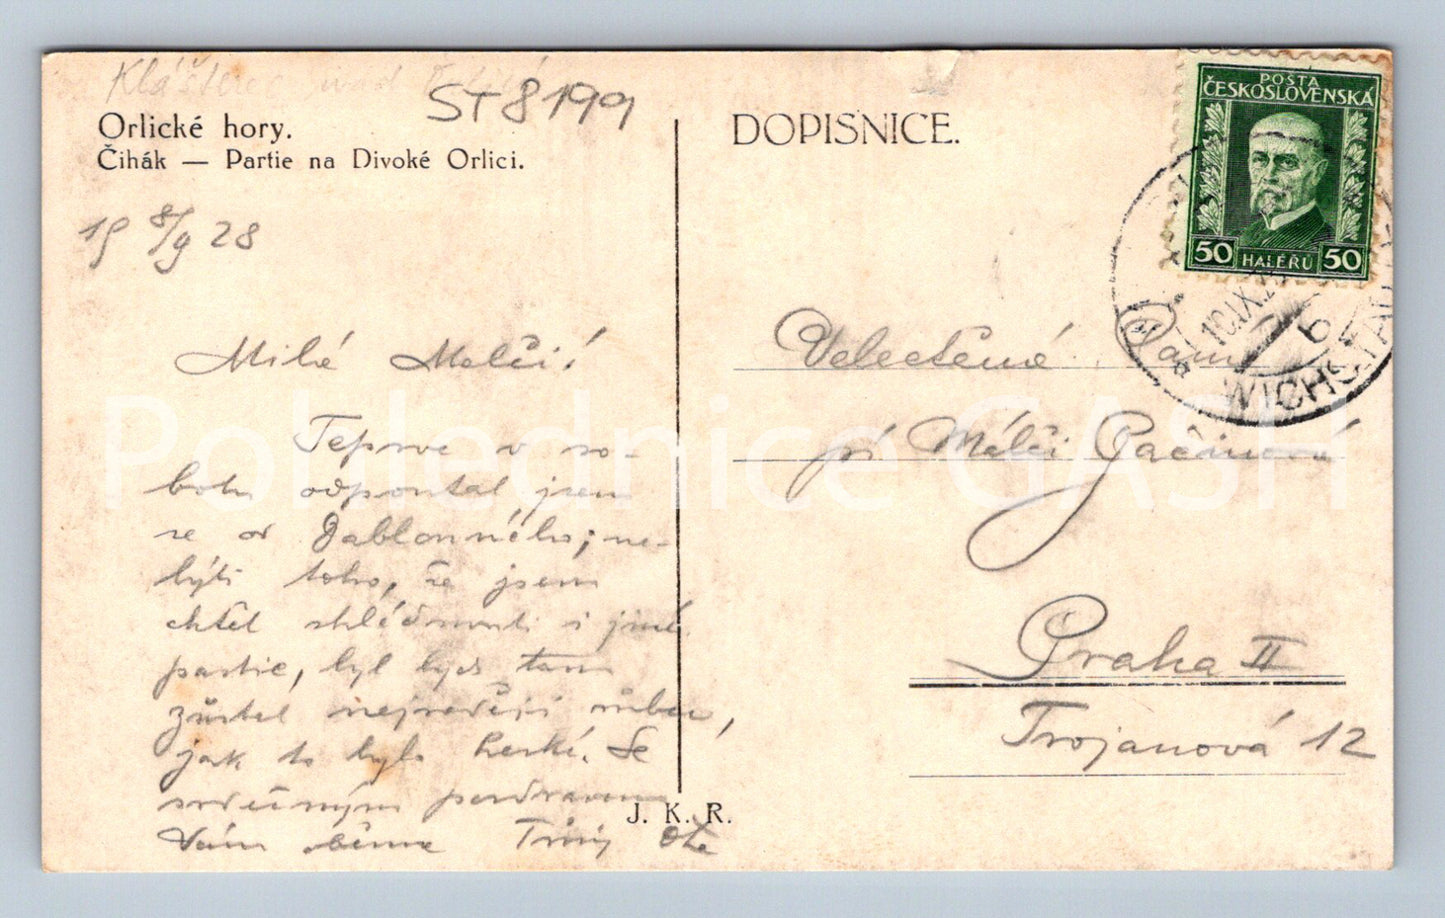 Klášterec nad
ST8199
Orlické hory.
Čihák — Partie na Divoké Orlici.
DOPISNICE.
POŠTA
ČESKOSLOVENSKÁ
50 HALÉŘŮ 50
10.IX.2
6
WICHSTA
19 8/9 28
Milá Melči!
Teprve v so-
botu odpoutal jsem
se od Jablonného; ne-
býti toho, že jsem
chtěl shlédnouti i jiné
partie, byl bych tam
zůstal nejraději vůbec,
jak to bylo hezké. Se
srdečným pozdravem
Vám oběma Tvůj Ota
J. K. R.
Velectěná Paní
pí Melči
Praha II
Trojanová 12
Pohlednice GASH